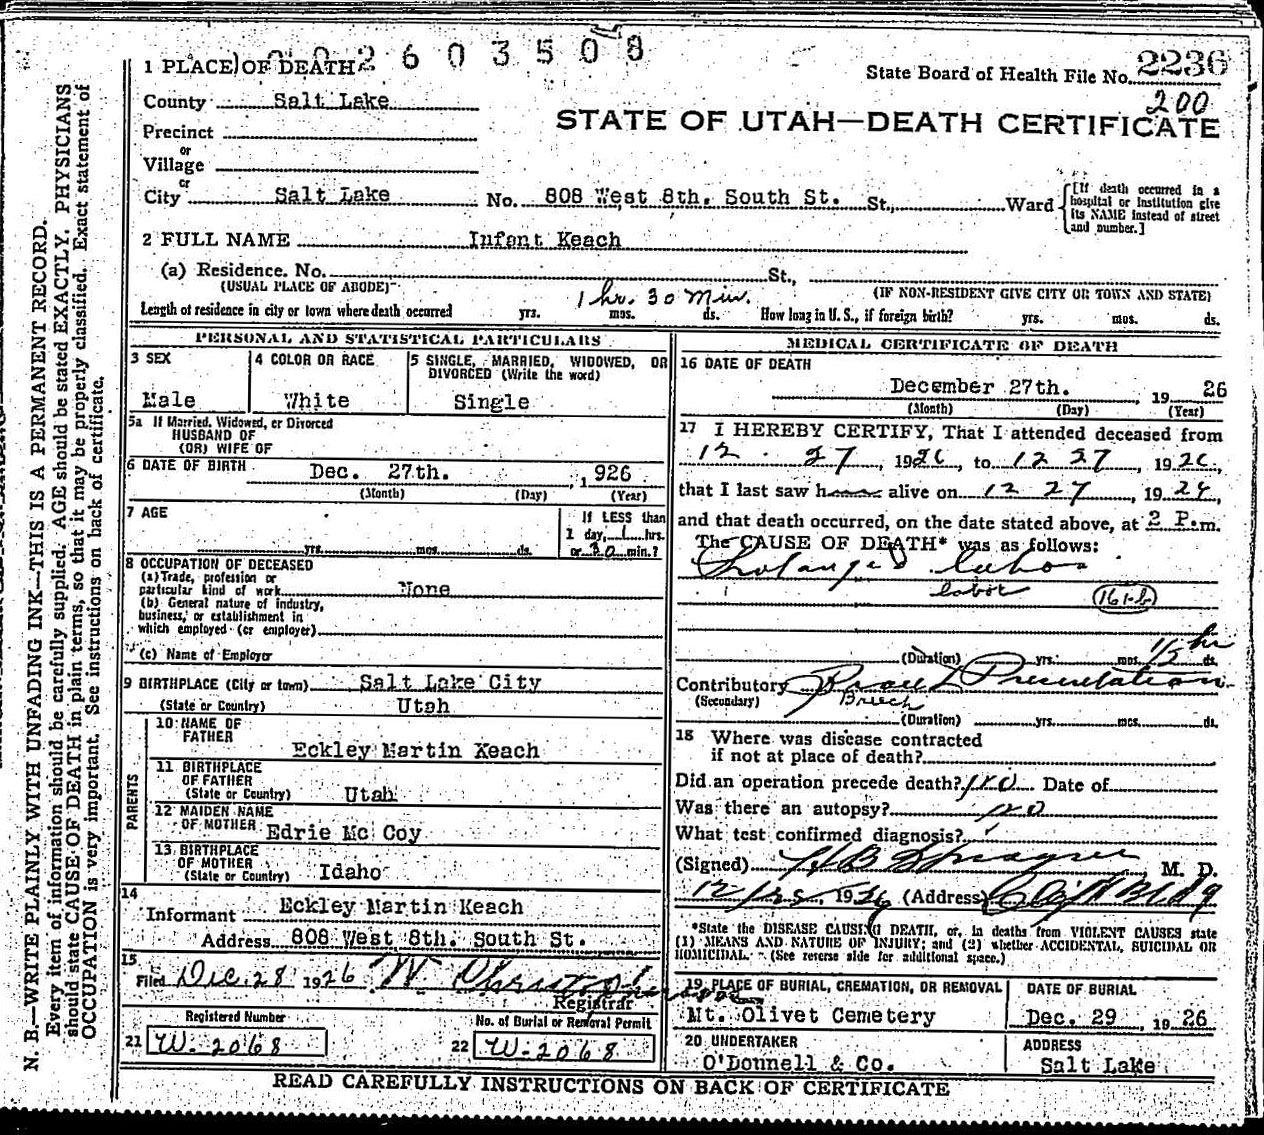 2603508
1 PLACE OF DEATH
State Board of Health File No. 2236
200
County Salt Lake
STATE OF UTAH—DEATH CERTIFICATE
Precinct
or
Village
or
City Salt Lake No. 808 West 8th. South St. St., Ward
[If death occurred in a
hospital or institution give
its NAME instead of street
and number.]
2 FULL NAME Infant Keach
(a) Residence. No. St.,
(USUAL PLACE OF ABODE) (IF NON-RESIDENT GIVE CITY OR TOWN AND STATE)
1 hr. 30 Min.
Length of residence in city or town where death occurred yrs. mos. ds. How long in U. S., if foreign birth? yrs. mos. ds.
PERSONAL AND STATISTICAL PARTICULARS
3 SEX
Male
4 COLOR OR RACE
White
5 SINGLE, MARRIED, WIDOWED, OR
DIVORCED (Write the word)
Single
5a If Married, Widowed, or Divorced
HUSBAND OF
(OR) WIFE OF
6 DATE OF BIRTH Dec. 27th. , 1926
(Month) (Day) (Year)
7 AGE
yrs. mos. ds.
If LESS than
1 day, 1 hrs.
or 30 min.?
8 OCCUPATION OF DECEASED
(a) Trade, profession or
particular kind of work None
(b) General nature of industry,
business, or establishment in
which employed (or employer)
(c) Name of Employer
9 BIRTHPLACE (City or town) Salt Lake City
(State or Country) Utah
PARENTS
10 NAME OF
FATHER
Eckley Martin Keach
11 BIRTHPLACE
OF FATHER
(State or Country) Utah
12 MAIDEN NAME
OF MOTHER Edrie Mc Coy
13 BIRTHPLACE
OF MOTHER
(State or Country) Idaho
14
Informant Eckley Martin Keach
Address 808 West 8th. South St.
15
Filed Dec. 28 1926 W Christopherson
Registrar
Registered Number
21 W-2068
No. of Burial or Removal Permit
22 W-2068
MEDICAL CERTIFICATE OF DEATH
16 DATE OF DEATH
December 27th. , 19 26
(Month) (Day) (Year)
17 I HEREBY CERTIFY, That I attended deceased from
12 27, 1926, to 12 27, 1926,
that I last saw h alive on 12 27, 1926,
and that death occurred, on the date stated above, at 2 P.m.
The CAUSE OF DEATH* was as follows:
Prolonged labor
labor 161-b
(Duration) yrs. mos. ds. hr
Contributory Breech Presentation
(Secondary) Breech
(Duration) yrs. mos. ds.
18 Where was disease contracted
if not at place of death?
Did an operation precede death? no Date of
Was there an autopsy? no
What test confirmed diagnosis?
(Signed) H B Sprague M. D.
12/28, 1926 (Address) Clift Bldg
*State the DISEASE CAUSING DEATH, or, in deaths from VIOLENT CAUSES state
(1) MEANS AND NATURE OF INJURY; and (2) whether ACCIDENTAL, SUICIDAL OR
HOMICIDAL. (See reverse side for additional space.)
19 PLACE OF BURIAL, CREMATION, OR REMOVAL
Mt. Olivet Cemetery
DATE OF BURIAL
Dec. 29 , 19 26
20 UNDERTAKER
O'Donnell & Co.
ADDRESS
Salt Lake
READ CAREFULLY INSTRUCTIONS ON BACK OF CERTIFICATE
N. B.—WRITE PLAINLY WITH UNFADING INK—THIS IS A PERMANENT RECORD.
Every item of information should be carefully supplied. AGE should be stated EXACTLY. PHYSICIANS
should state CAUSE OF DEATH in plain terms, so that it may be properly classified. Exact statement of
OCCUPATION is very important. See instructions on back of certificate.